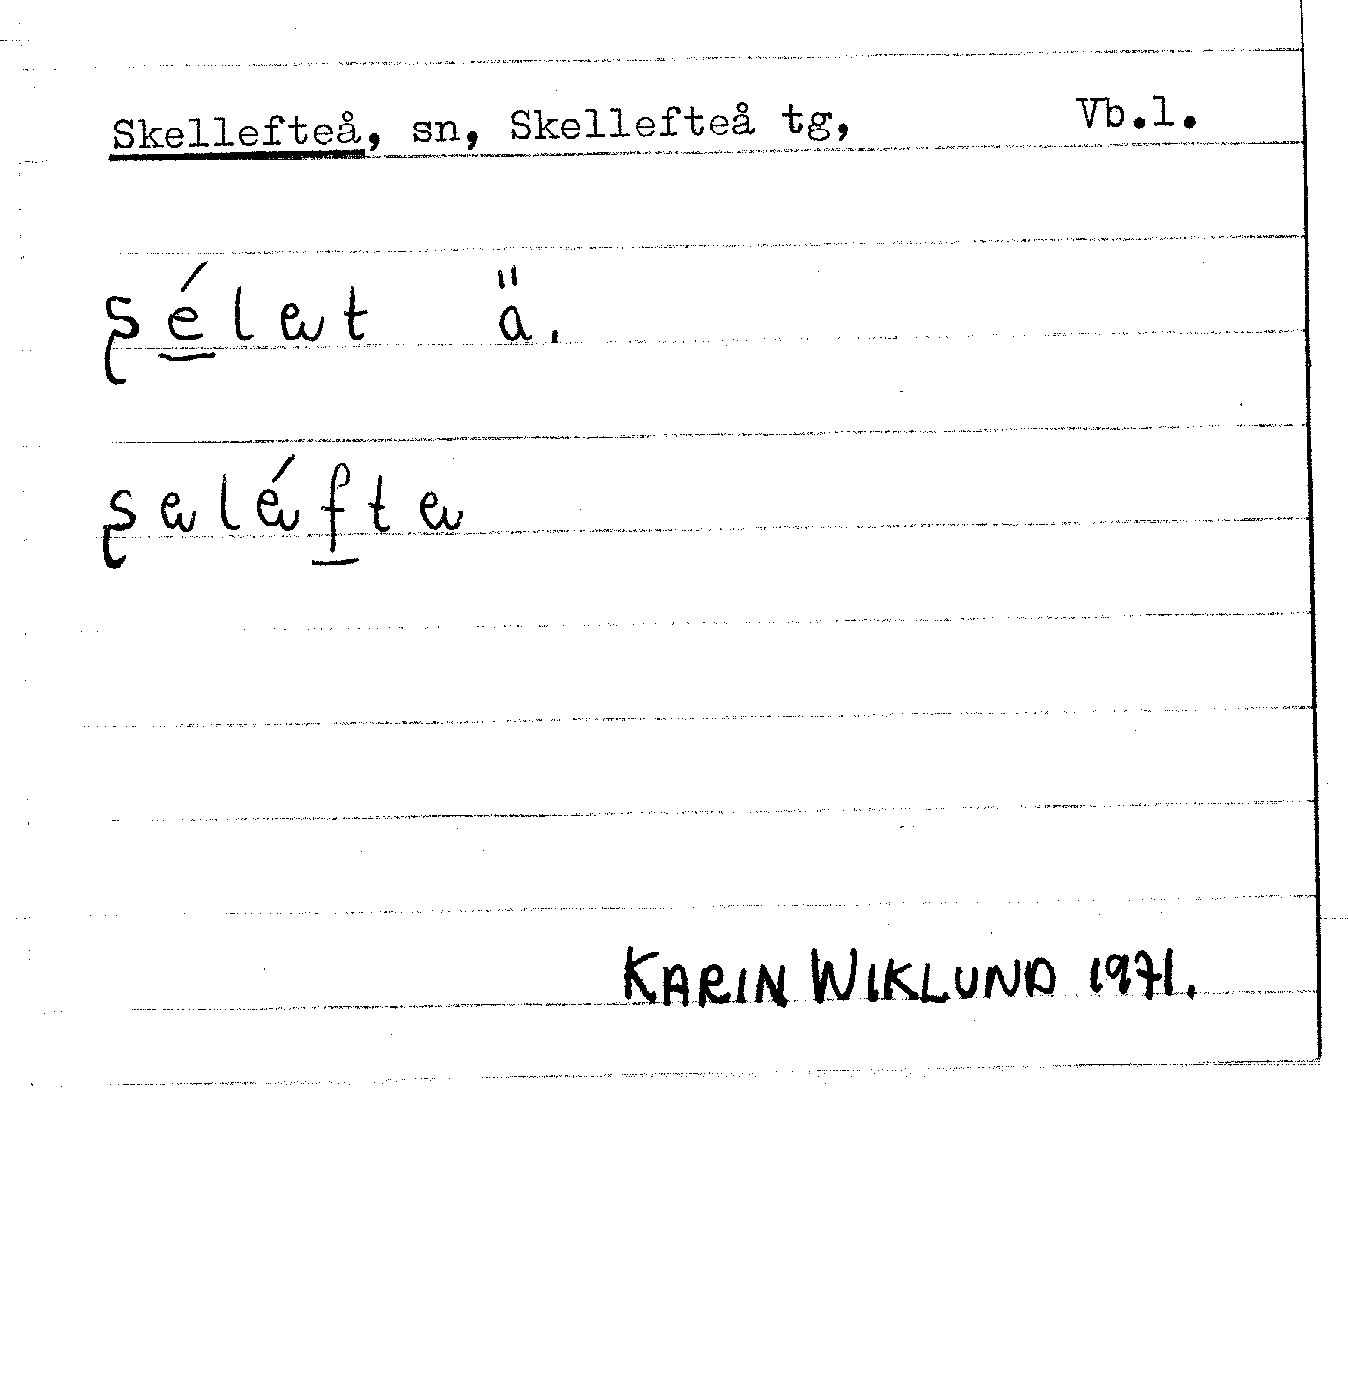 Skellefteå, sn, Skellefteå tg, Vb.l.
ʂé̲lɐt ä.
ʂɐlɐ́f̲tɐ
KARIN WIKLUND 1971.